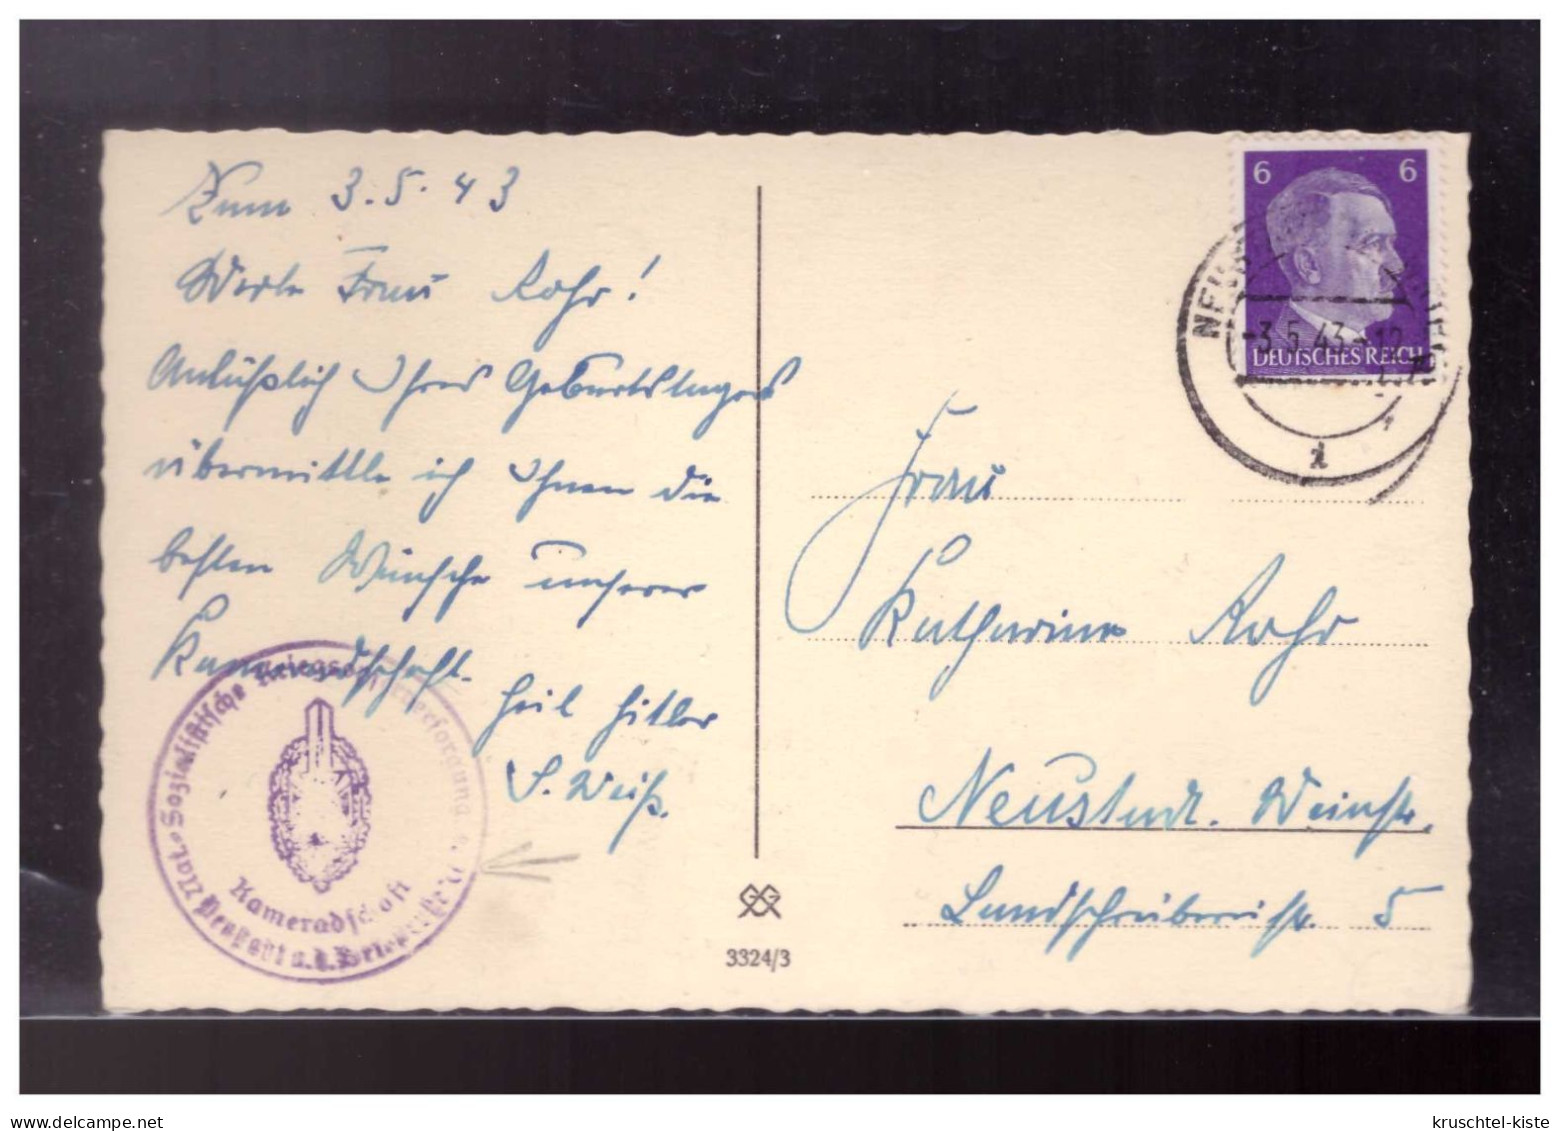 Zum 3.5.43
Werte Frau Rohr!
Anläßlich Ihres Geburtstages
übermittle ich Ihnen die
besten Wünsche unserer
Kameradschaft.
Heil Hitler
S. Weiß.
Nat.-Sozialistische Kriegsopferversorgung e. V.
Kameradschaft
Neustadt a. d.
6 6
DEUTSCHES REICH
-3.5.43.-12
Frau
Katharina Rohr
Neustadt. Weinstr.
Landschreibereistr. 5
3324/3
www.delcampe.net
kruschtel-kiste